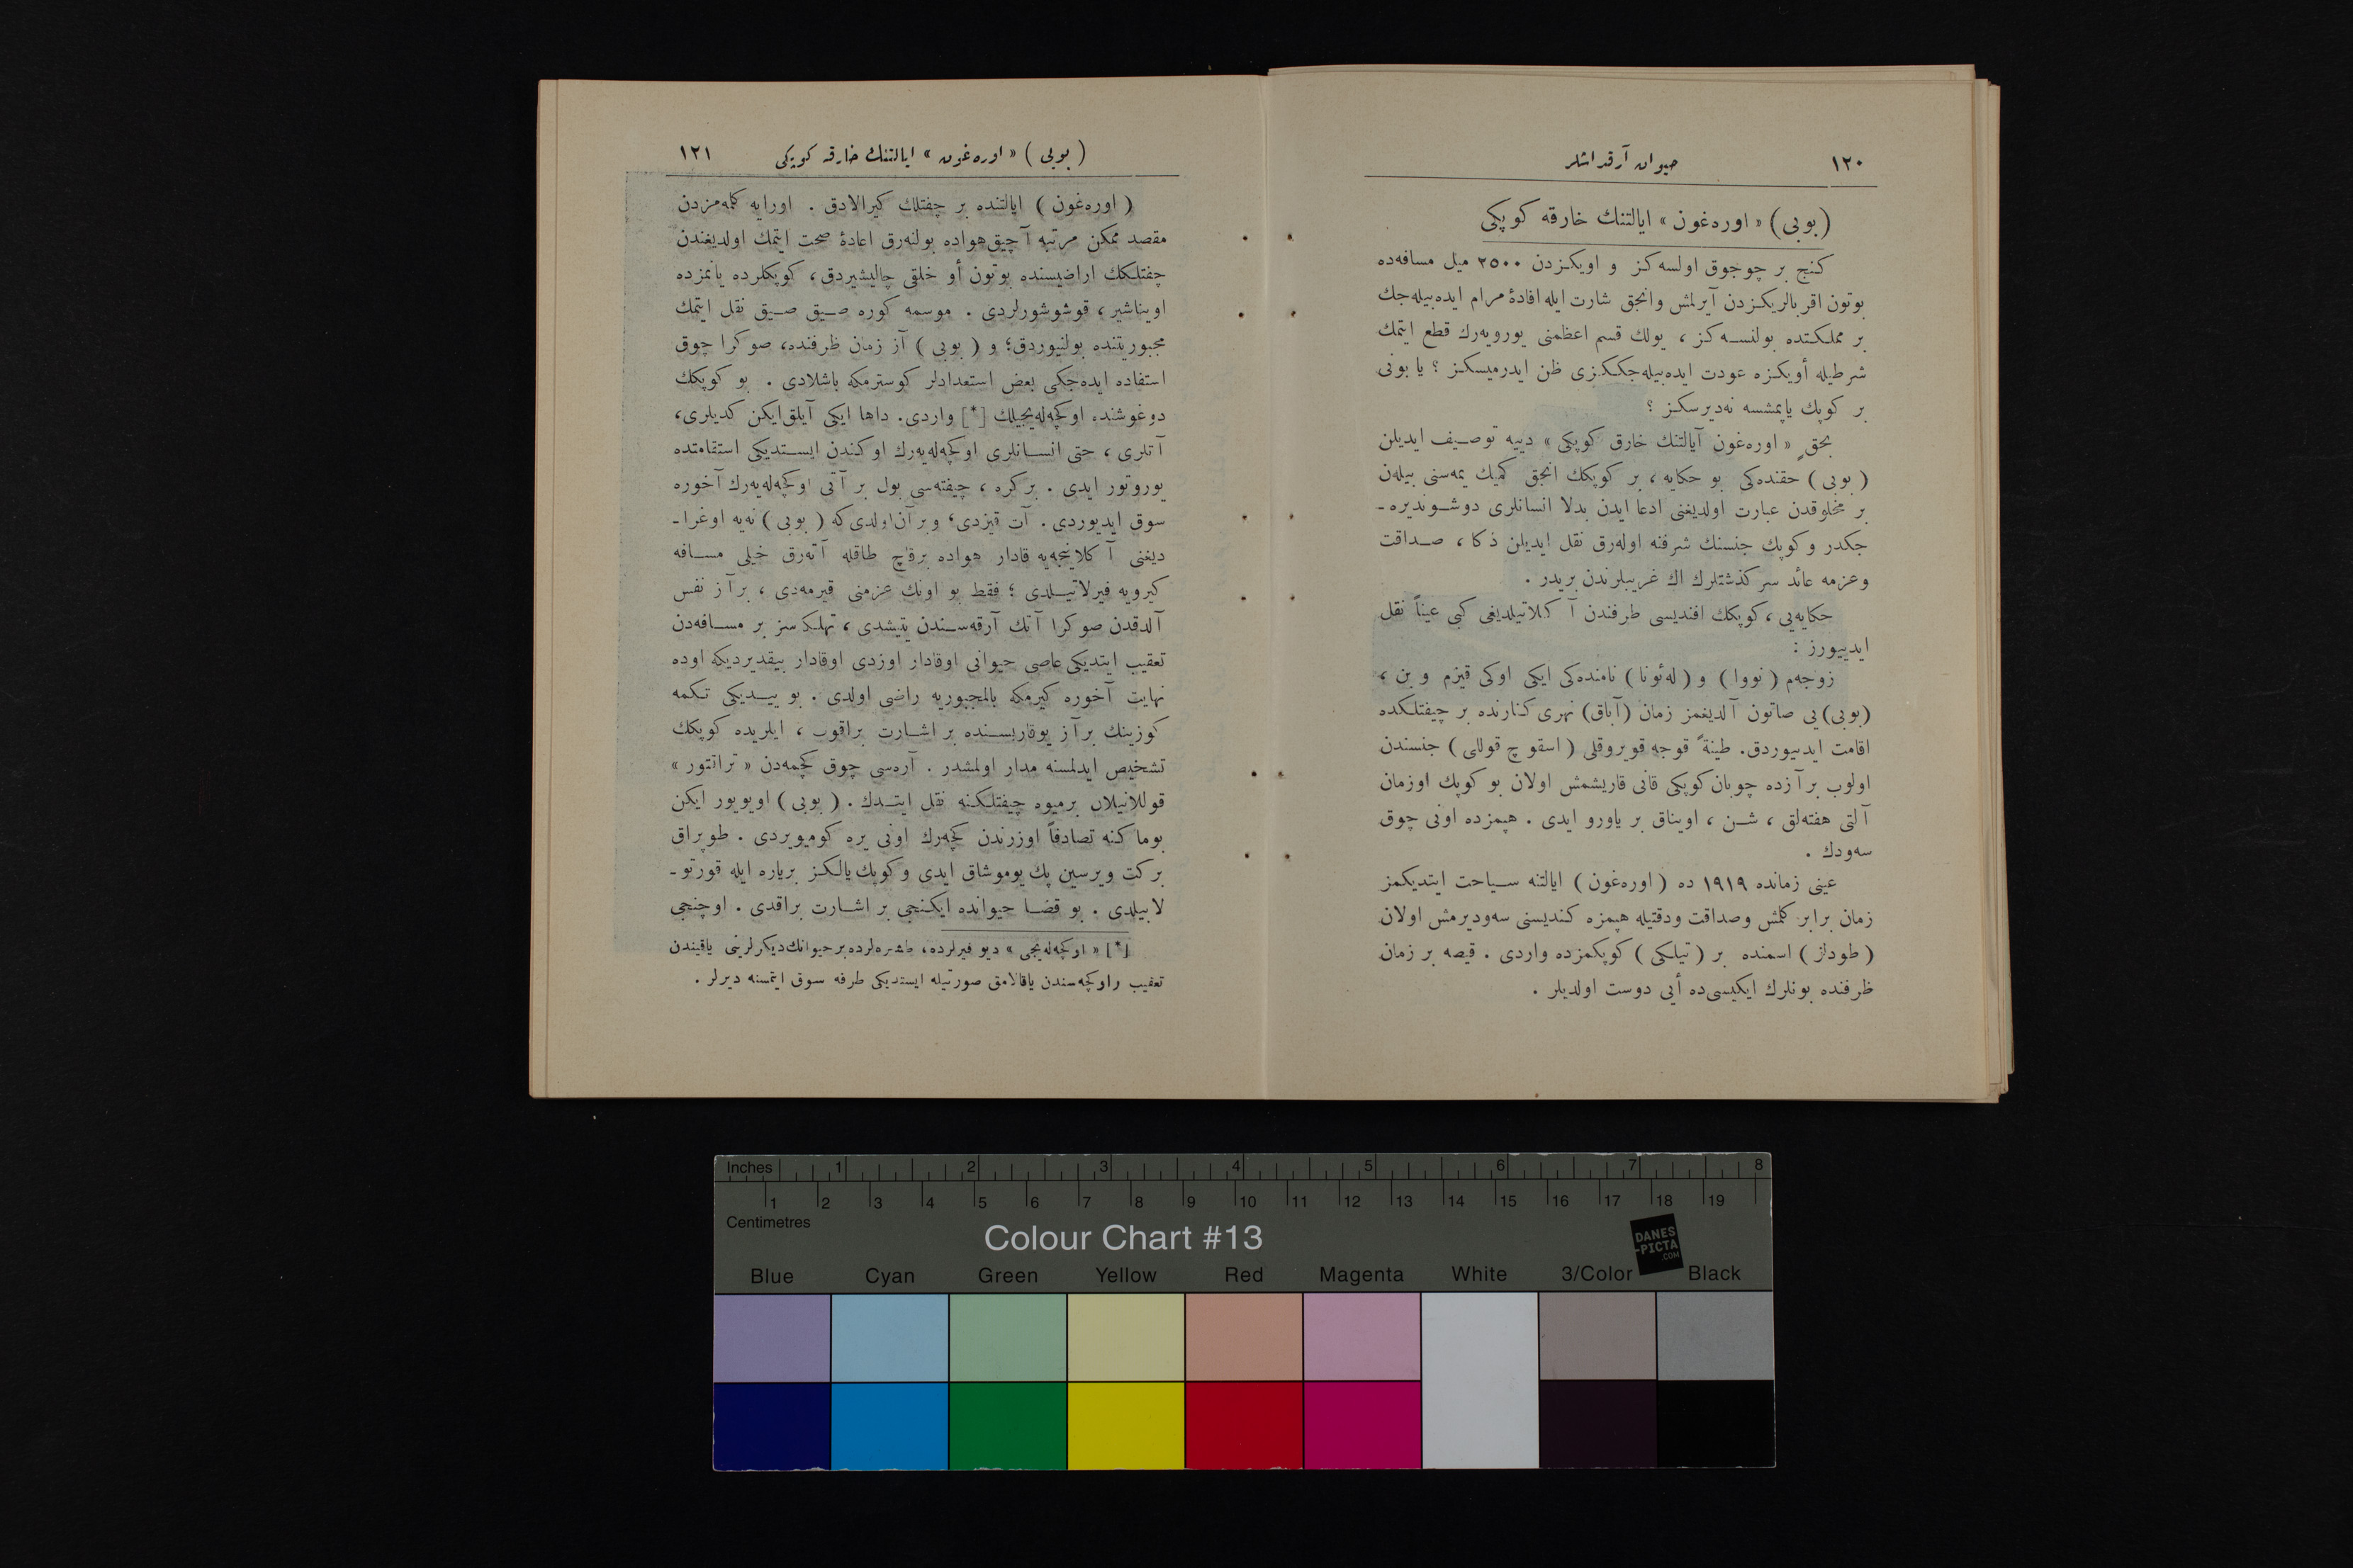 ١٢٠
حیوان آرقداشلر
(بوبی) « اوره‌غون » ایالتنك خارقه كوپكی
كنج بر چوجوق اولسه‌كز و اویكزدن ٢٥٠٠ میل مسافه‌ده
بوتون اقربالریكزدن آیرلمش وانجق شارت ایله افادۀ مرام ایده‌بیله‌جك
بر مملكتده بولنسه‌كز ، یولك قسم اعظمنی یورویه‌رك قطع ایتمك
شرطیله أویكزه عودت ایده‌بیله‌جككزی ظن ایدرمیسكز ؟ یا بونی
بر كوپك یاپمشسه نه‌دیرسكز ؟
بحقٍ « اوره‌غون آیالتنك خارق كوپكی » دییه توصیف ایدیلن
(بوبی) حقنده‌كی بو حكایه ، بر كوپكك انجق كمیك یمه‌سنی بیله‌ن
بر مخلوقدن عبارت اولدیغنی ادعا ایدن بدلا انسانلری دوشوندیره ـ
جكدر وكوپك جنسنك شرفنه اوله‌رق نقل ایدیلن ذكا ، صداقت
وعزمه عائد سركذشتلرك اك غریبلرندن بریدر .
حكایه‌یی ، كوپكك افندیسی طرفندن آ كلاتیلدیغی كبی عیناً نقل
ایدییورز :
زوجه‌م (نووا) و (له‌ئونا) نامنده‌كی ایكی اوكی قیزم و بن ،
(بوبی) یی صاتون آلدیغمز زمان (آباق) نهری كنارنده بر چیفتلكده
اقامت ایدییوردق. طینةً قوجه قویروقلی (اسقوچ قوللی) جنسندن
اولوب بر آزده چوبان كوپكی قانی قاریشمش اولان بو كوپك اوزمان
آلتی هفته‌لق ، شن ، اویناق بر یاورو ایدی . هپمزده اونی چوق
سه‌ودك .
عینی زمانده ١٩١٩ ده (اوره‌غون) ایالتنه سیاحت ایتدیكمز
زمان برابر كلمش وصداقت ودقتیله هپمزه كندیسنی سه‌ودیرمش اولان
(طودلز) اسمنده بر (تیلكی) كوپكمزده واردی . قیصه بر زمان
ظرفنده بونلرك ایكیسی‌ده أیی دوست اولدیلر .
(بوبی) « اوره‌غون » ایالتنك خارقه كوپكی
١٢١
(اوره‌غون) ایالتنده بر چفتلك كیرالادق . اورایه كلمه‌مزدن
مقصد ممكن مرتبه آچیق‌هواده بولنه‌رق اعادۀ صحت ایتمك اولدیغندن
چفتلكك اراضیسنده بوتون أو خلقی چالیشیردق ، كوپكلرده یانمزده
اویناشیر ، قوشوشورلردی . موسمه كوره صیق صیق نقل ایتمك
مجبوریتنده بولنیوردق؛ و (بوبی) آز زمان ظرفنده، صوكرا چوق
استفاده ایده‌جكی بعض استعدادلر كوسترمكه باشلادی . بو كوپكك
دوغوشنده اوكچه‌له‌یجیلك [*] واردی. داها ایكی آیلق‌ایكن كدیلری،
آتلری ، حتی انسانلری اوكچه‌له‌یه‌رك اوكندن ایستدیكی استقامتده
یوروتور ایدی . بركره ، چیفته‌سی بول بر آتی اوكچه‌له‌یه‌رك آخوره
سوق ایدیوردی. آت قیزدی؛ وبر آن‌اولدی‌كه (بوبی) نه‌یه اوغرا ـ
دیغنی آ كلاینجه‌یه قادار هواده برقاچ طاقله آته‌رق خیلی مسافه
كیرویه فیرلاتیلدی ؛ فقط بو اونك عزمنی قیرمه‌دی ، برآز نفس
آلدقدن صوكرا آتك آرقه‌سندن یتیشدی ، تهلكه‌سز بر مسافه‌دن
تعقیب ایتدیكی عاصی حیوانی اوقادار اوزدی اوقادار بیقدیردیكه اوده
نهایت آخوره كیرمكه بالمجبوریه راضی اولدی . بو ییدیكی تكمه
كوزینك برآز یوقاریسنده بر اشارت براقوب ، ایلریده كوپكك
تشخیص ایدلمسنه مدار اولمشدر . آره‌سی چوق كچمه‌دن « تراقتور »
قوللانیلان برمیوه چیفتلكنه نقل ایتدك . (بوبی) اویویور ایكن
بوما كنه تصادفاً اوزرندن كچه‌رك اونی یره كومیویردی . طوپراق
بركت ویرسین پك یوموشاق ایدی وكوپك یالكز بریاره ایله قورتو ـ
لابیلدی . بو قضا حیوانده ایكنجی بر اشارت براقدی . اوچنجی
[*] « اوكچه‌له‌یجی » دیو فیرلرده، طشره‌لرده‌بر حیوانك‌دیكرلرینی یاقیندن
تعقیب واوكچه‌سندن یاقالامق صورتیله ایستدیكی طرفه سوق ایتمسنه دیرلر .
Inches 1 2 3 4 5 6 7 8
1 2 3 4 5 6 7 8 9 10 11 12 13 14 15 16 17 18 19
Centimetres
Colour Chart #13
DANES
-PICTA
.COM
Blue Cyan Green Yellow Red Magenta White 3/Color Black